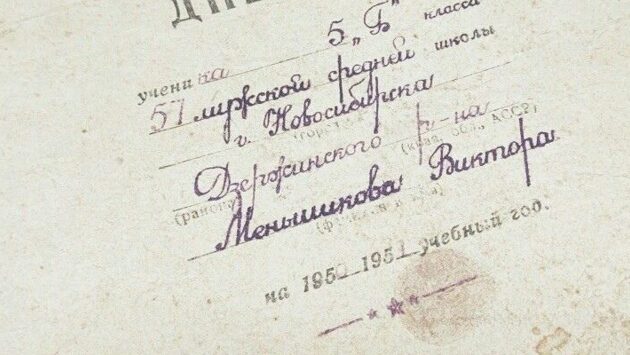 ученика 5 „Б" класса
57 мужской средней школы
г. Новосибирска
(гор
(край, обл., АССР)
Дзержинского р-на
(района
Меньшикова Виктора
на 1950 1951 учебный год.